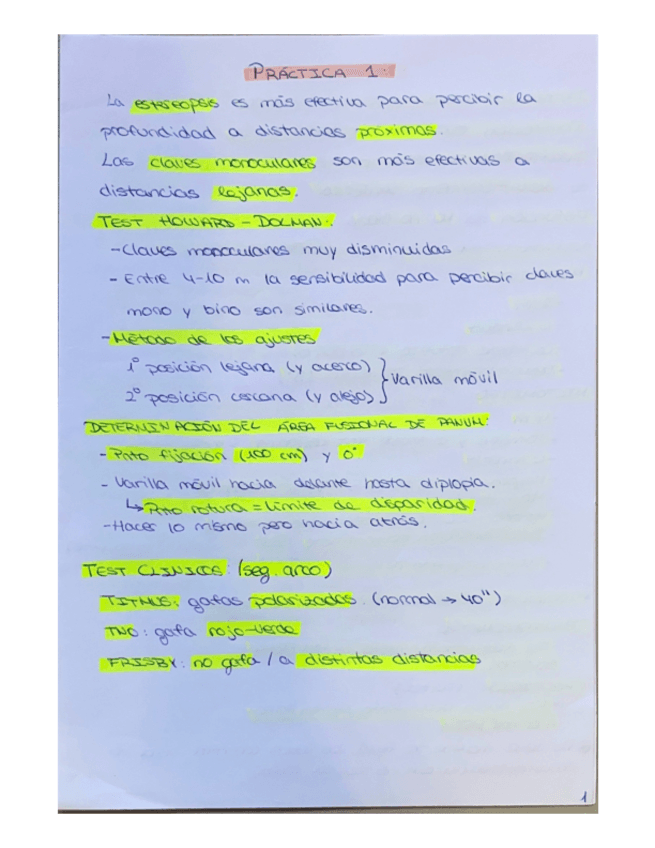 PRÁCTICA 1.
La estereopsis es más efectiva para percibir la
profundidad a distancias próximas.
Las claves monoculares son más efectivas a
distancias lejanas.
TEST HOWARD-DOLMAN:
-Claves monoculares muy disminuidas
- Entre 4-10 m la sensibilidad para percibir claves
mono y bino son similares.
-Método de los ajustes
1º posición lejana (y acerco)
2º posición cercana (y alejo)
} Varilla móvil
DETERMINACIÓN DEL ÁREA FUSIONAL DE PANUM:
- Pnto fijación (100 cm) y 0°
- Varilla móvil hacia delante hasta diplopia.
↳ Pnto rotura = límite de disparidad.
-Hacer lo mismo pero hacia atrás.
TEST CLINICOS: (seg. arco)
TITMUS: gafas polarizadas. (normal → 40")
TNO: gafa rojo-verde
FRISBY: no gafa / a distintas distancias
1